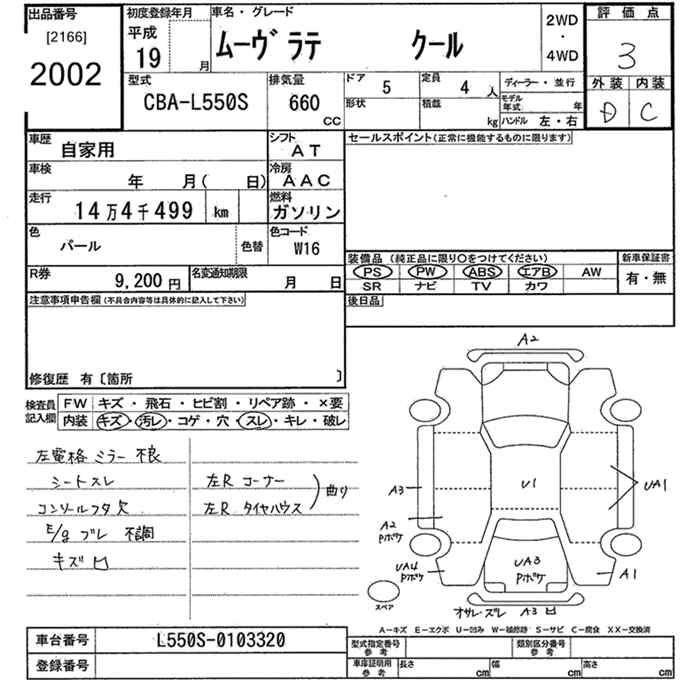 出品番号
[2166]
2002
初度登録年月
平成
19 月
車名・グレード
ムーヴ ラテ クール
2WD
・
4WD
評価点
3
外装 内装
D C
型式
CBA-L550S
排気量
660
CC
ドア 5
定員 4 人
ディーラー・並行
形状
積載 kg
モデル年式 年
ハンドル 左・右
車歴 自家用
シフト AT
車検 年 月( 日)
冷房 AAC
走行 14万4千499 km
燃料 ガソリン
色 パール 色替
色コード W16
R券 9,200円
名変通知期限 月 日
セールスポイント(正常に機能するものに限ります)
装備品 (純正品に限り○をつけてください)
新車保証書
PS PW ABS エアB AW
SR ナビ TV カワ
有・無
後日品
注意事項申告欄(不具合内容等は具体的に記入して下さい)
修復歴 有〔箇所 〕
検査員記入欄
FW キズ・飛石・ヒビ割・リペア跡・×要
内装 キズ・汚レ・コゲ・穴・スレ・キレ・破レ
左電格ミラー不良
シートスレ
コンソールフタ欠
E/g ブレ 不調
キズ凹
左R コーナー
左R タイヤハウス
曲り
A2
A3
U1
UA1
A2
Pボケ
UA4
Pボケ
UA3
Pボケ
A1
スペア
オサレ・ズレ A3 凹
A−キズ E−エクボ U−凹み W−補修跡 S−サビ C−腐食 XX−交換済
車台番号 L550S-0103320
登録番号
型式指定番号
参考
類別区分番号
参考
車庫証明用
参考
長さ cm 幅 cm 高さ cm